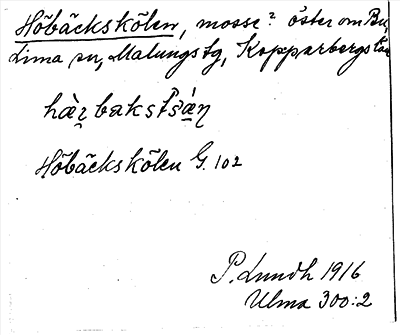 Höbäckskölen, mosse? öster om
Lima sn, Malungs tg, Kopparbergs län
Höbäckskölen G. 102
P. Lundh 1916
Ulma 300:2